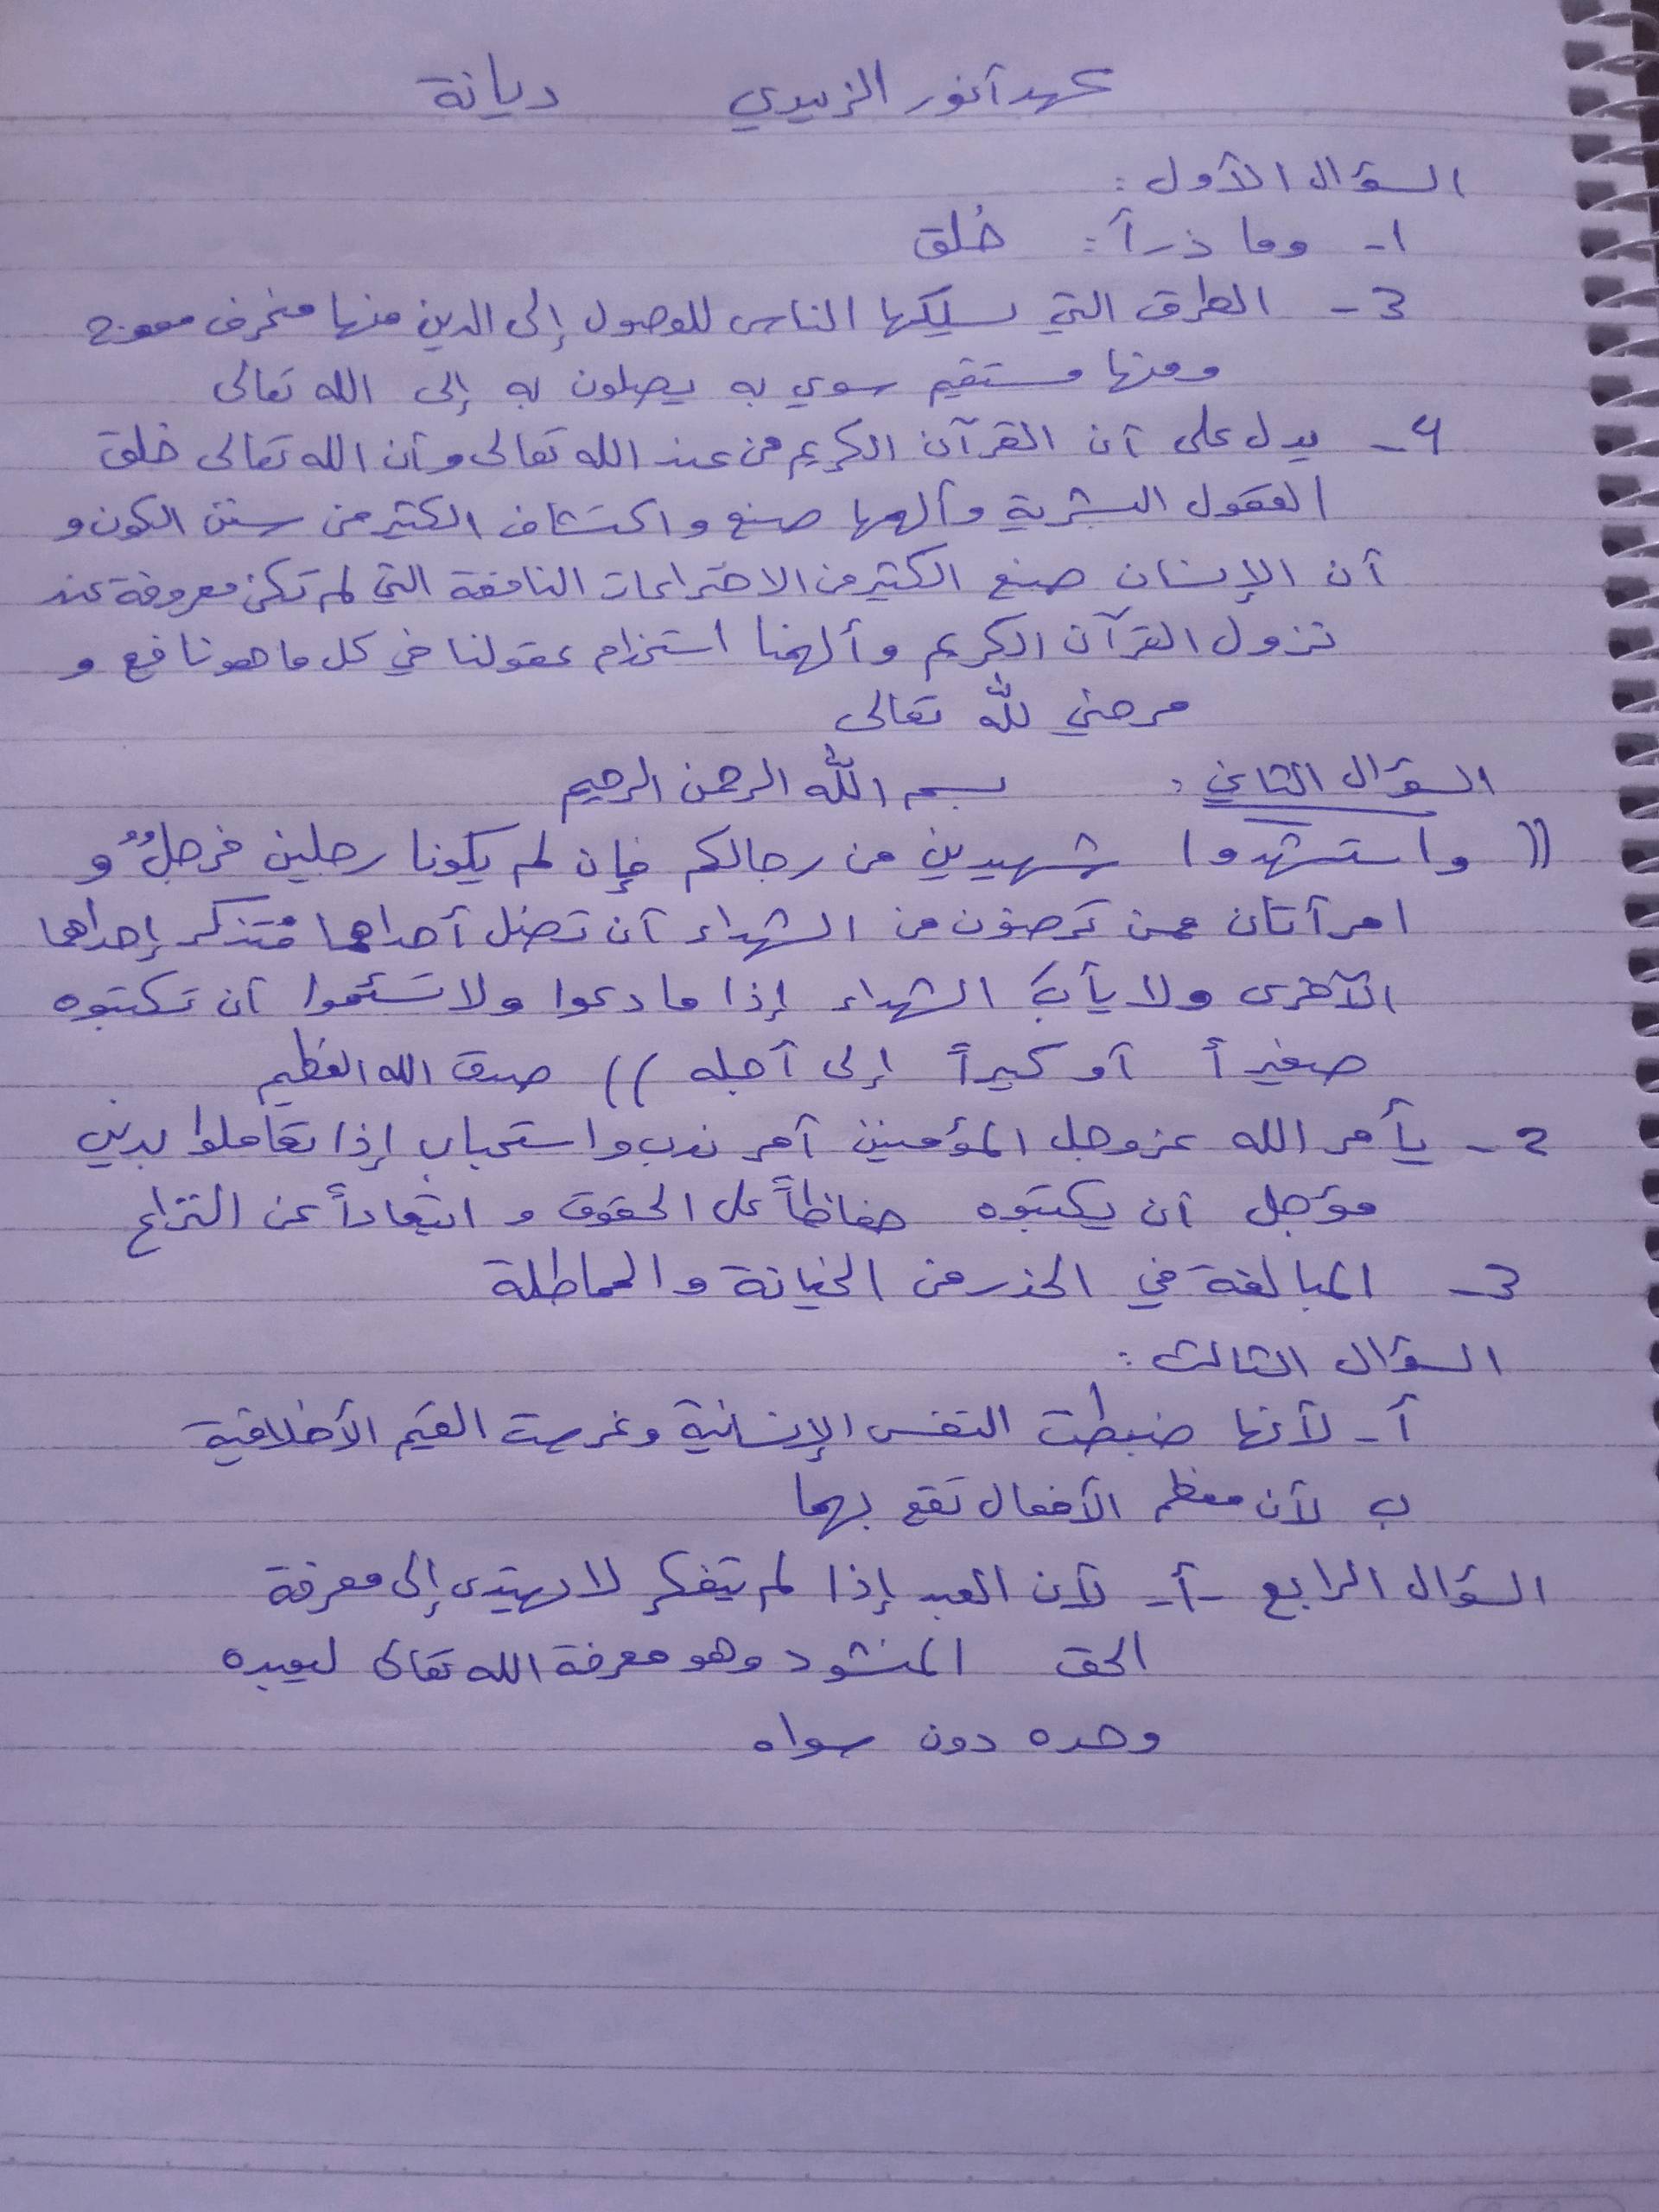 عهد أنور الزبيدي ديانة
السؤال الأول :
1- وما ذرأ : خُلق
3- الطرق التي يسلكها الناس للوصول إلى الدين منها منحرف معوج
ومنها مستقيم سوي به يصلون به إلى الله تعالى
4- يدل على أن القرآن الكريم من عند الله تعالى وأن الله تعالى خلق
العقول البشرية وألهمها صنع واكتشاف الكثير من سنن الكون و
أن الإنسان صنع الكثير من الاختراعات النافعة التي لم تكن معروفة عند
نزول القرآن الكريم وألهمنا استخدام عقولنا في كل ما هو نافع و
مرضي لله تعالى
السؤال الثاني : بسم الله الرحمن الرحيم
(( واستشهدوا شهيدين من رجالكم فإن لم يكونا رجلين فرجلٌ و
امرأتان ممن ترضون من الشهداء أن تضل أحداهما فتذكر إحداهما
الأخرى ولا يأبَ الشهداء إذا ما دعوا ولا تسَئموا أن تكتبوه
صغيراً أو كبيراً إلى أجله )) صدق الله العظيم
2- يأمر الله عزوجل المؤمنين أمر ندب واستحباب إذا تعاملوا بدين
مؤجل أن يكتبوه حفاظاً على الحقوق و ابتعاداً عن النزاع
3- المبالغة في الحذر من الخيانة والمماطلة
السؤال الثالث :
أ- لأنها ضبطت النفس الإنسانية وغرست القيم الأخلاقية
ب لأن معظم الأفعال تقع بهما
السؤال الرابع -أ- لأن العبد إذا لم يتفكر لا يهتدي إلى معرفة
الحق المنشود وهو معرفة الله تعالى ليعبده
وحده دون سواه